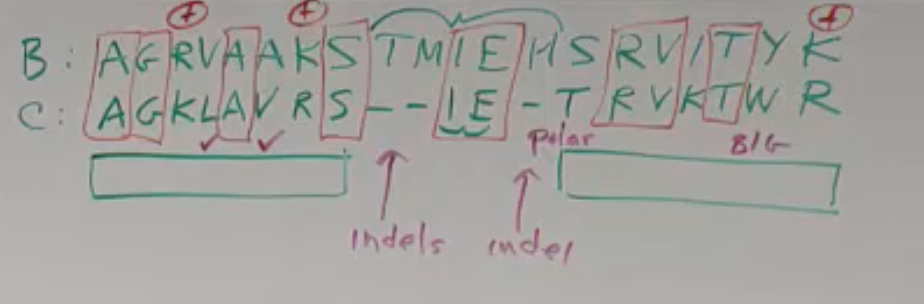 + + +
B: AGRVAAKSTMIEHSRVITYK
C: AGKLAVRS--IE-TRVKTWR
polar BIG
Indels indel